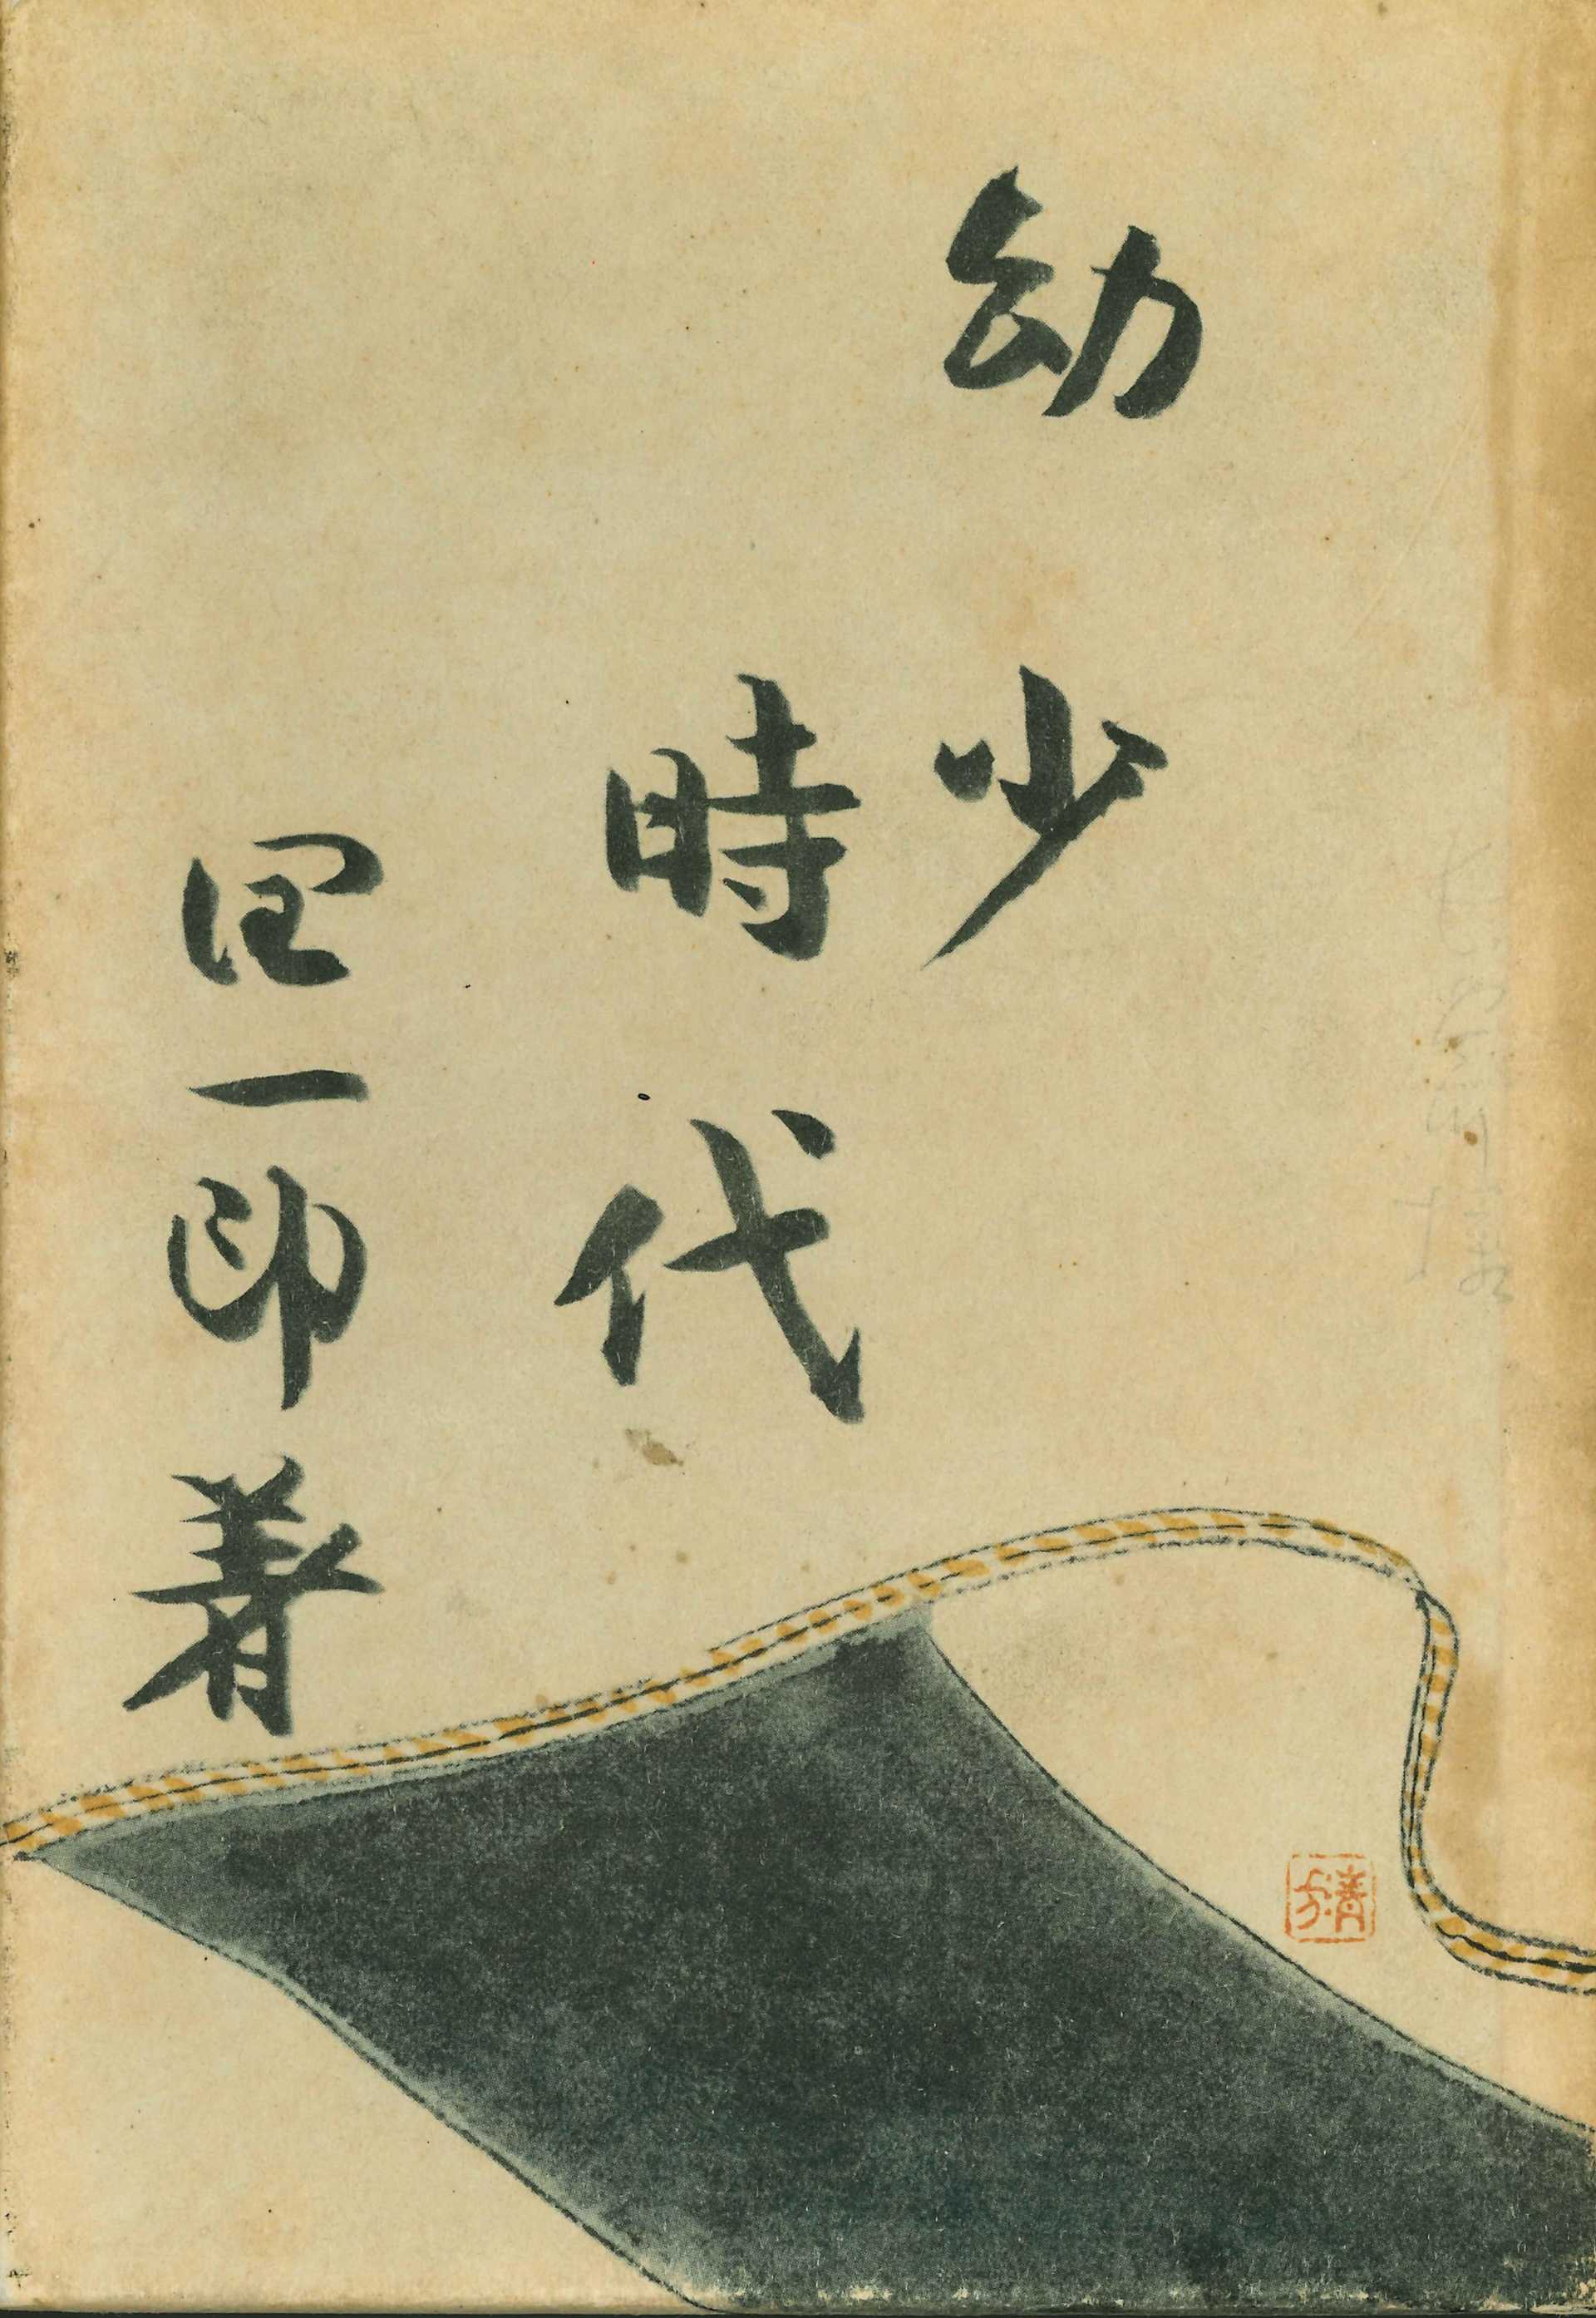 幼少
時代
潤一郎著
清方